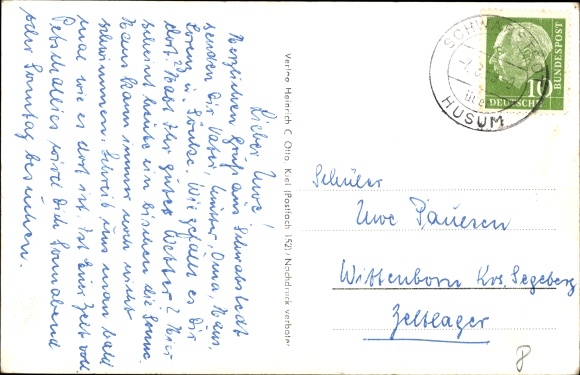 Lieber Uwe!
Herzlichen Gruß aus Schwabstedt
senden Dir Vater, Mutter, Oma, Hans,
Lorenz u. Wie gefällt es Dir
dort? Habt Ihr gutes Wetter? Hier
scheint heute ein bischen die Sonne.
Hans kann immer noch nicht
schwimmen. Schreib uns man bald
mal wie es dort ist. Ist Euer Zelt voll.
wird Dich Sonnabend
oder Sonntag besuchen.
Verlag Heinrich C. Otto, Kiel (Postfach 152) / Nachdruck verboten
SCHWABSTEDT
über
HUSUM
10
DEUTSCHE
BUNDESPOST
Schüler
Uwe Pauesen
Wittenborn Krs. Segeberg
Zeltlager
8